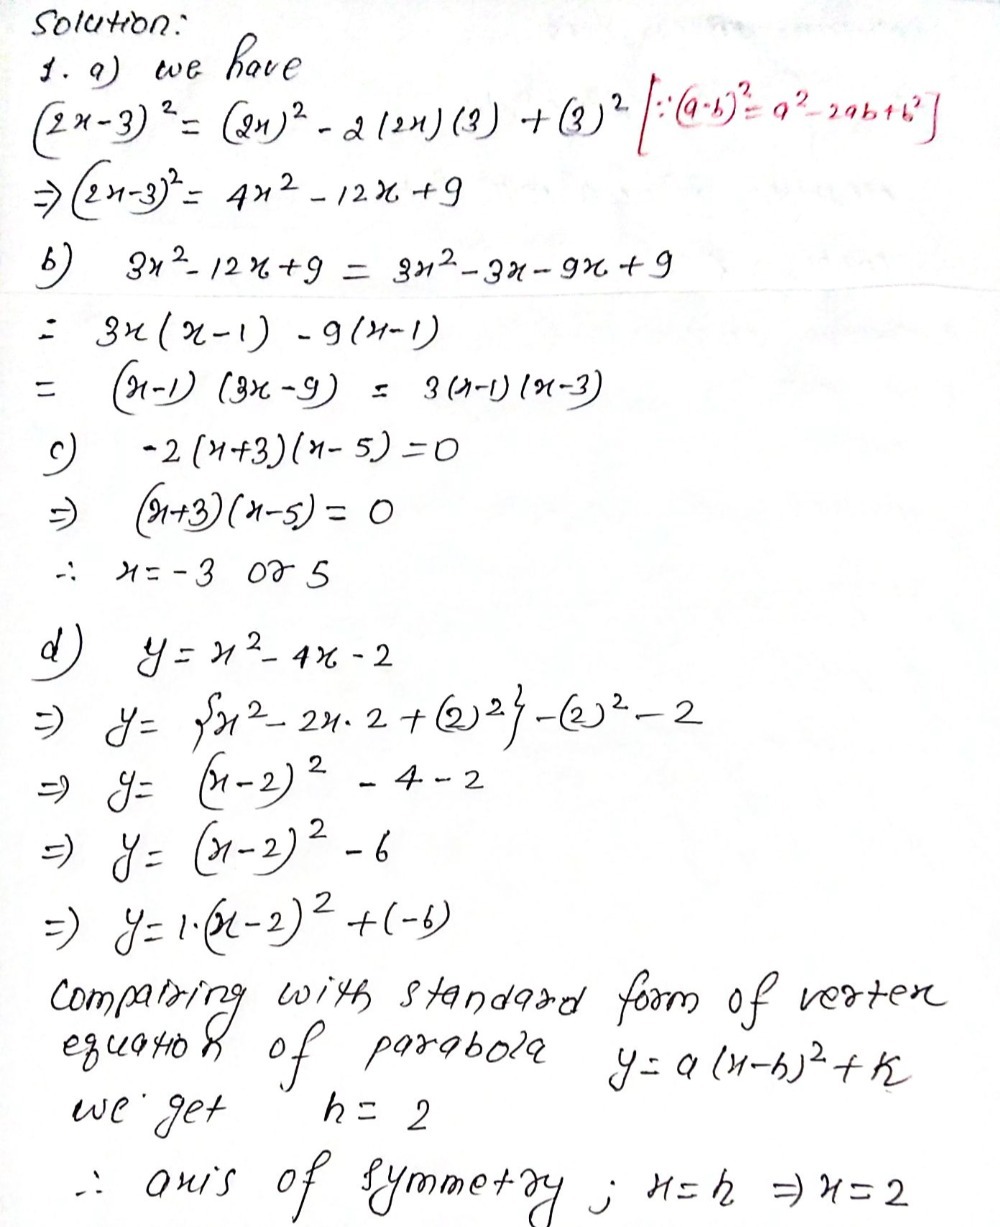 Solution:
1. a) we have
(2x-3)² = (2x)² - 2(2x)(3) + (3)² [∵(a-b)² = a² - 2ab + b²]
⇒ (2x-3)² = 4x² - 12x + 9
b) 3x² - 12x + 9 = 3x² - 3x - 9x + 9
= 3x(x-1) - 9(x-1)
= (x-1) (3x-9) = 3(x-1)(x-3)
c) -2(x+3)(x-5) = 0
⇒ (x+3)(x-5) = 0
∴ x = -3 or 5
d) y = x² - 4x - 2
⇒ y = {x² - 2x.2 + (2)²} - (2)² - 2
⇒ y = (x-2)² - 4 - 2
⇒ y = (x-2)² - 6
⇒ y = 1.(x-2)² + (-6)
Comparing with standard form of vertex
equation of parabola y = a(x-h)² + k
we get h = 2
∴ axis of symmetry ; x = h ⇒ x = 2